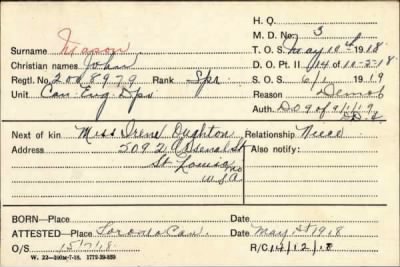 H. Q.
M. D. No. 3
Surname Mason
T. O. S. May 10th 1918
Christian names John
D. O. Pt. II 114 of 10-5-18
Regtl. No. 2008979 Rank Spr.
S. O. S. 6/1 1919
Unit Can. Eng. Dps
Reason Demob
Auth. DO 9 of 9/1/19
DD 2
Next of kin Miss Irene Dughton Relationship Niece
Address 5092 Arsenal St Also notify:
St. Louis Mo
U.S.A
BORN—Place Date
ATTESTED—Place Toronto Can. Date May 1918
O/S 15/7/18 R/C 14/12/18
W. 22—200M-7-18. 1772-39-839